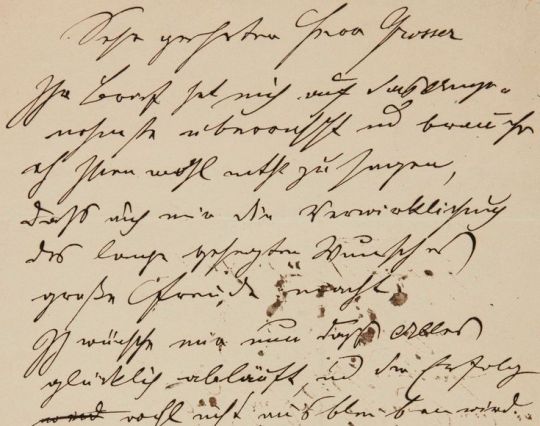 Sehr geehrter Herr Grosser
Ihr Brief hat mich auf das Ange-
nehmste überrascht und brauche
ich Ihnen wohl nicht zu sagen,
daß auch mir die Verwirklichung
des lange gehegten Wunsches
große Freude macht.
Ich wünsche mir nun daß Alles
glücklich abläuft und der Erfolg
wohl nicht ausbleiben wird.